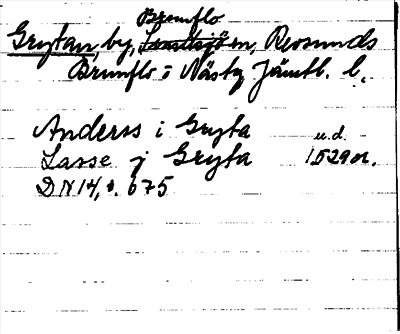 Brunflo
Grytan, by, Revsunds
Brunflo o Näsby Jämtl. l.
Anders i Gryta u.d.
Lasse j Gryta 1529 or.
DN 14, s. 675